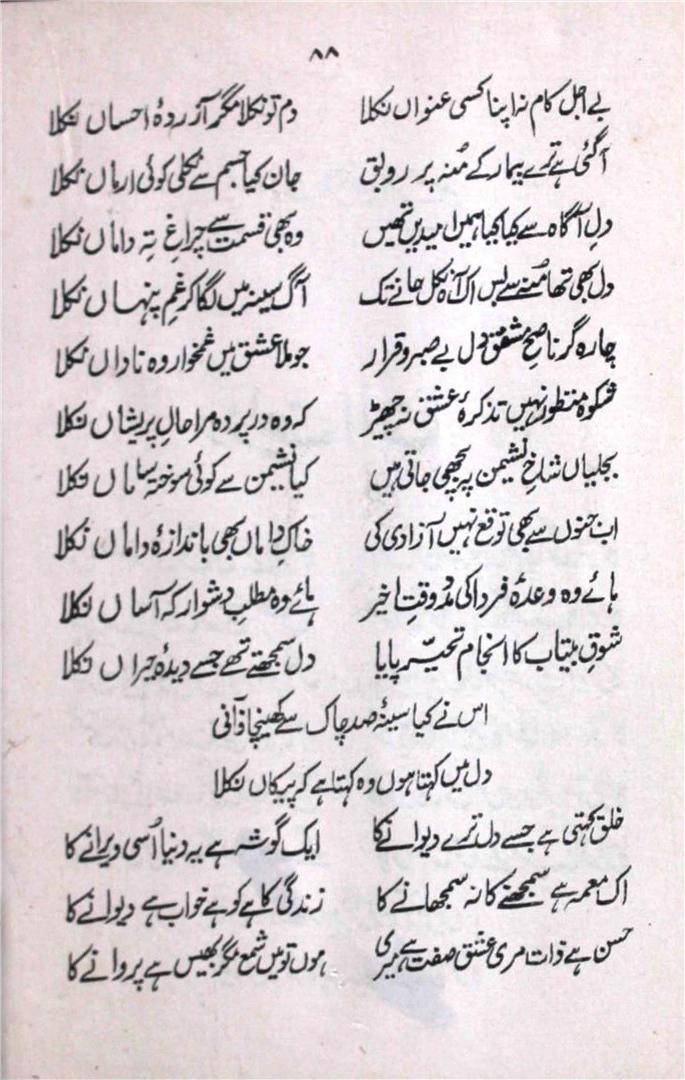 ۸۸
بے اجل کام نہ اپنا کسی عنواں نکلا دم تو نکلا مگر آزردۂ احساں نکلا
آگئی ہے ترے بیمار کے مُنہ پر رونق جان کیا جسم سے نکلی کوئی ارماں نکلا
دلِ آگاہ سے کیا کیا ہمیں امیدیں تھیں وہ بھی قسمت سے چراغِ تہِ داماں نکلا
دل بھی تھا مُنہ سے بس اک آہ نکل جانے تک آگ سینہ میں لگا کر غمِ پنہاں نکلا
چارہ گر ناصحِ مشفق دلِ بے صبر و قرار جو ملا عشق میں غمخوار وہ ناداں نکلا
شکوہ منظور نہیں تذکرۂ عشق نہ چھیڑ کہ وہ در پردہ مرا حالِ پریشاں نکلا
بجلیاں شاخِ نشیمن پہ بچھی جاتی ہیں کیا نشیمن سے کوئی سوختہ ساماں نکلا
اب جنوں سے بھی توقع نہیں آزادی کی خاکِ داماں بھی باندازۂ داماں نکلا
ہائے وہ وعدۂ فردا کی مدد وقتِ اخیر ہائے وہ مطلبِ دشوار کہ آساں نکلا
شوقِ بیتاب کا انجام تحیّر پایا دل سمجھتے تھے جسے دیدۂ حیراں نکلا
اس نے کیا سینۂ صد چاک سے کھینچا فانی
دل میں کہتا ہوں وہ کہتا ہے کہ پیکاں نکلا
خلق کہتی ہے جسے دل ترے دیوانے کا ایک گوشہ ہے یہ دنیا اُسی ویرانے کا
اک معمہ ہے سمجھنے کا نہ سمجھانے کا زندگی کاہے کو ہے خواب ہے دیوانے کا
حسن ہے ذات مری عشق صفت ہے میری ہوں تو میں شمع مگر بھیس ہے پروانے کا